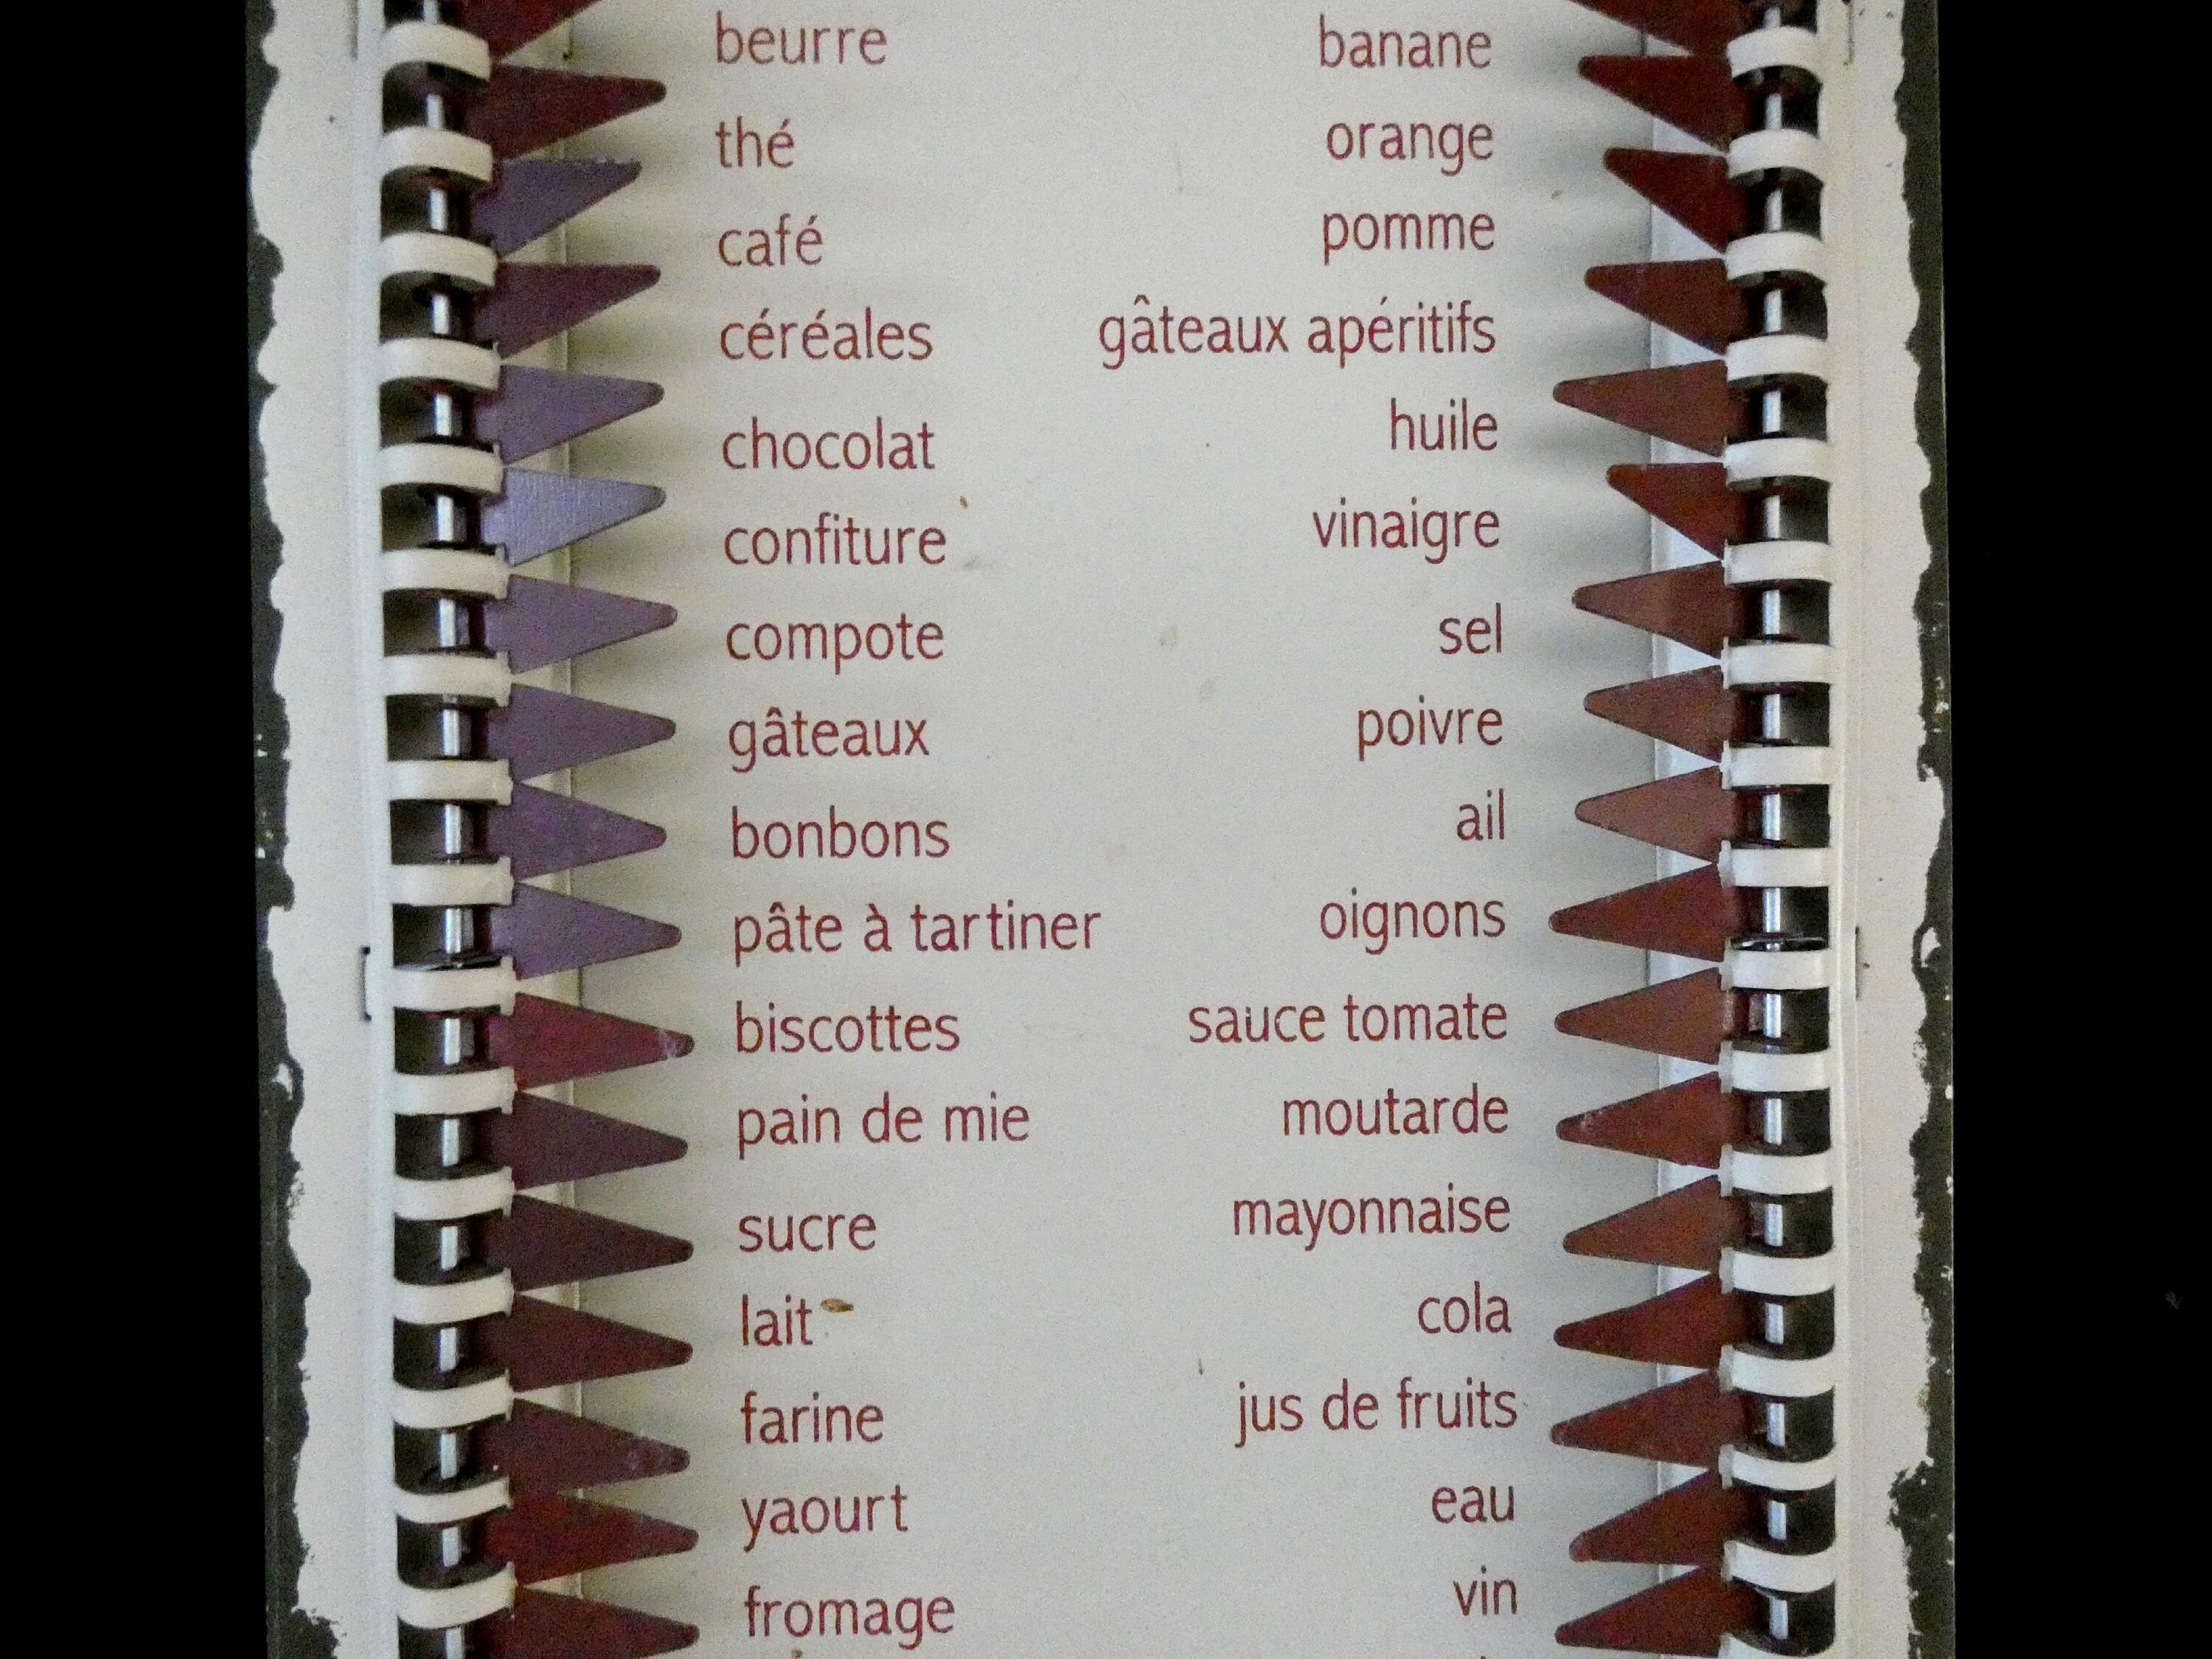 beurre
thé
café
céréales
chocolat
confiture
compote
gâteaux
bonbons
pâte à tartiner
biscottes
pain de mie
sucre
lait
farine
yaourt
fromage
banane
orange
pomme
gâteaux apéritifs
huile
vinaigre
sel
poivre
ail
oignons
sauce tomate
moutarde
mayonnaise
cola
jus de fruits
eau
vin